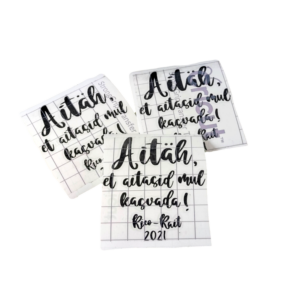 Aitäh,
et aitasid mul
kasvada!
Aitäh,
et aitasid mul
kasvada!
Rait
Aitäh,
et aitasid mul
kasvada!
Rico-Rait
2021